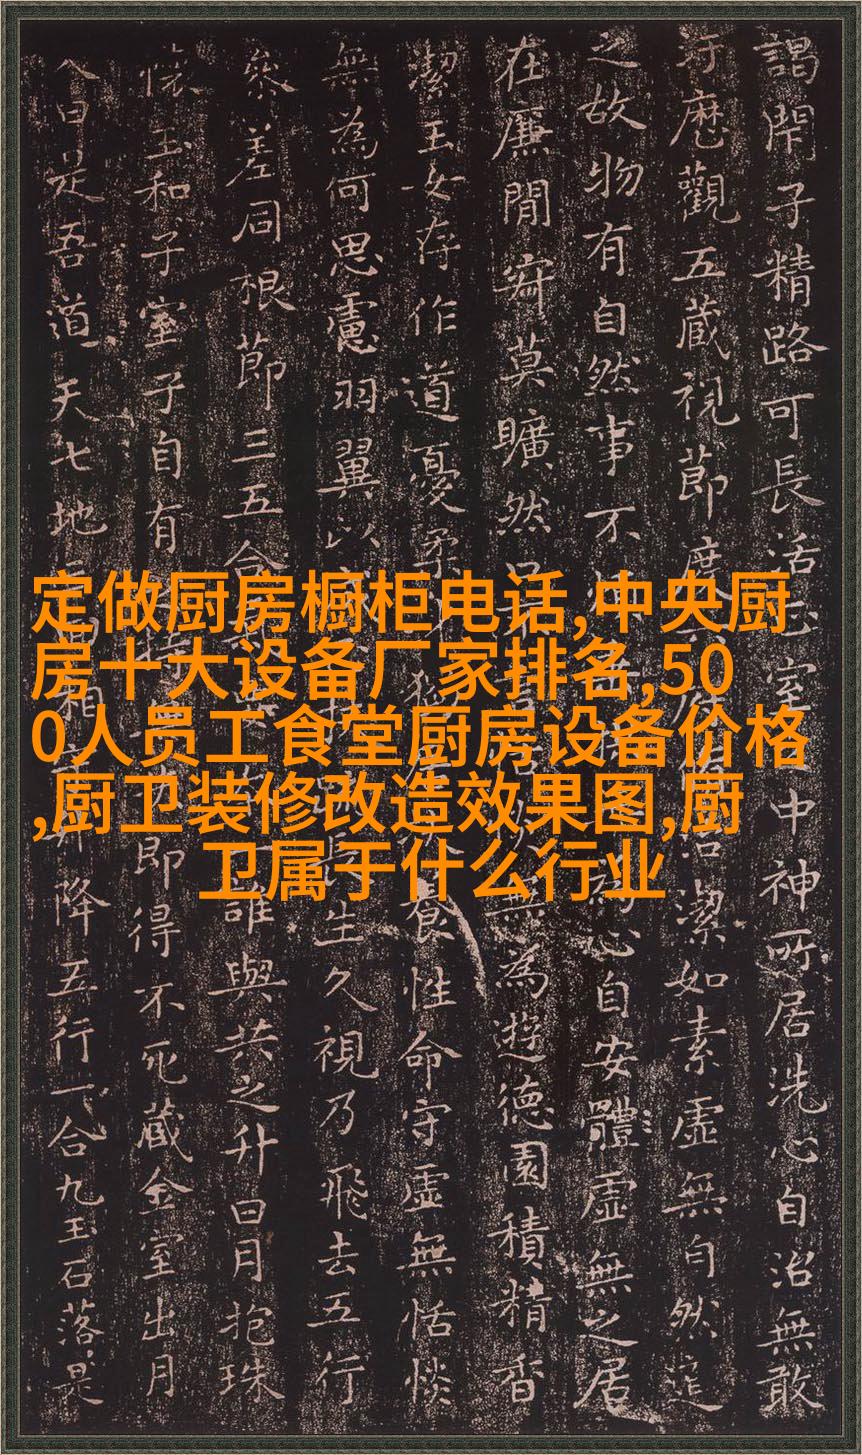 定做厨房橱柜电话,中央厨
房十大设备厂家排名,50
0人员工食堂厨房设备价格
,厨卫装修改造效果图,厨
卫属于什么行业
謁閇子精路可長活室中神所居洗心自治無敢
汙歷觀五藏視節度潔如素虛無自然道
之故物有自然事不心自安體虛無之居
在廉閒寂莫曠然無為遊德園積精香
潔玉女存作道憂柔獨居食性命守虛無恬惔
無為何思慮羽翼以生久視乃飛去五行
參差同根節三五合誰與共之升日月抱珠
懷玉和子室子自有持即得不死藏金室出月
入日是吾道天七地相升降五行一合九玉石落是